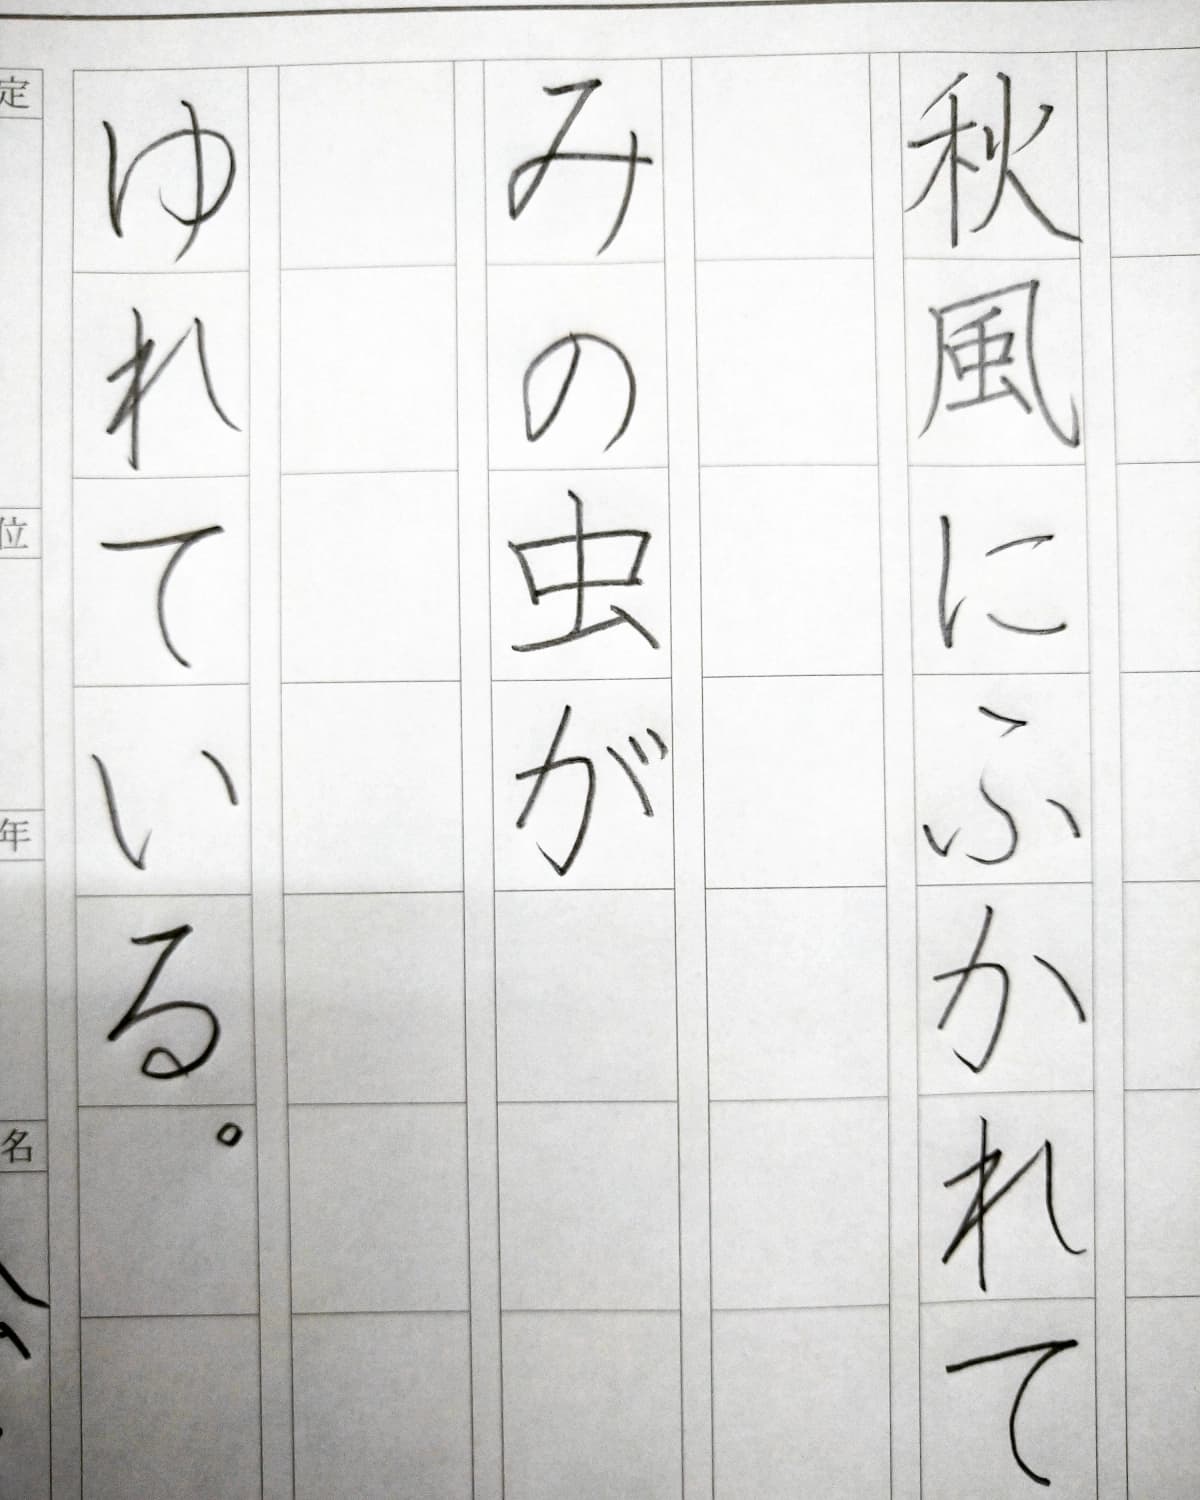 秋風にふかれて
みの虫が
ゆれている。
定
位
年
名